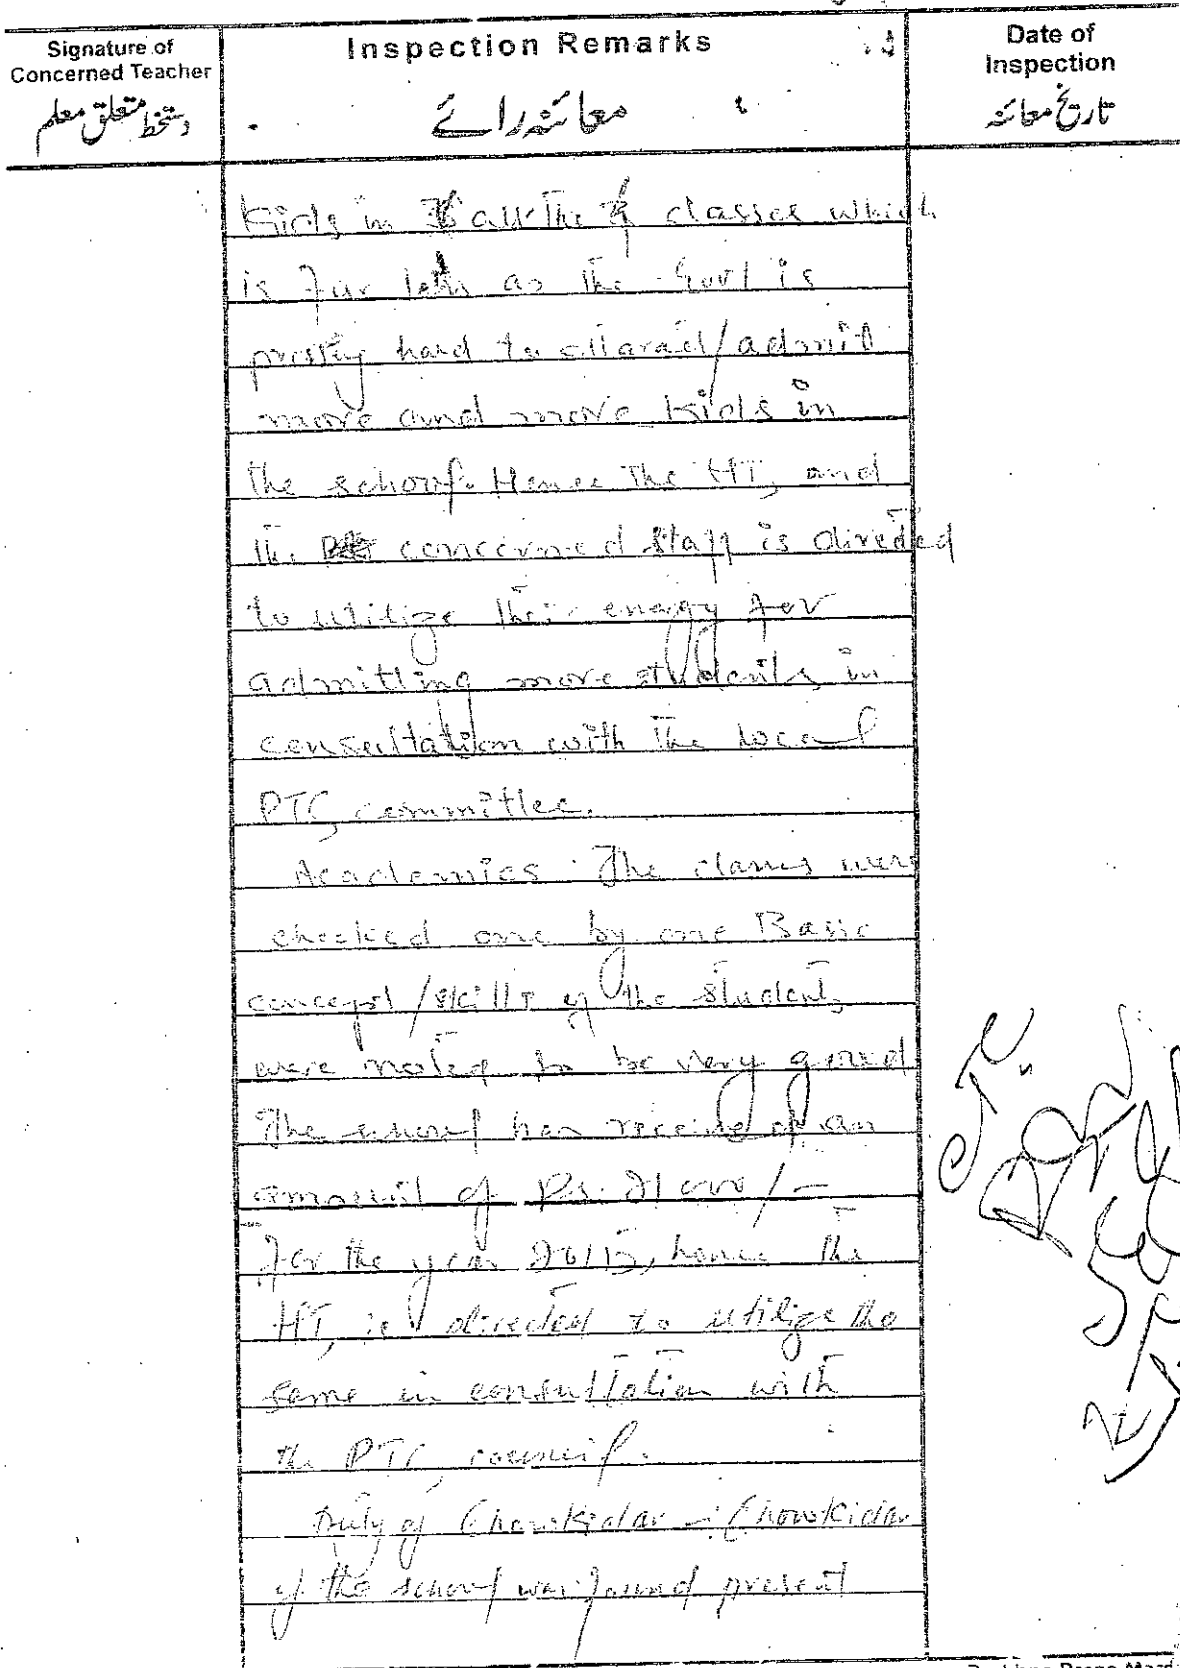 Signature of
Concerned Teacher
دستخط متعلق معلم
Inspection Remarks
معائنہ رائے
Date of
Inspection
تاریخ معائنہ
Kids in all the classes which
is far less as the Govt is
hard to /admit
more and more kids in
the school. Hence the HT, and
the concerned staff is directed
to utilize their energy for
admitting more students in
consultation with the local
PTC, committee.
Academics: The classes were
checked one by one Basic
concept/skills of the students
were noted to be very good
The school has received an
amount of Rs. /-
For the year hence the
HT, is directed to utilize the
same in consultation with
the PTC, council.
Duty of Chowkidar - Chowkidar
of the school was found present